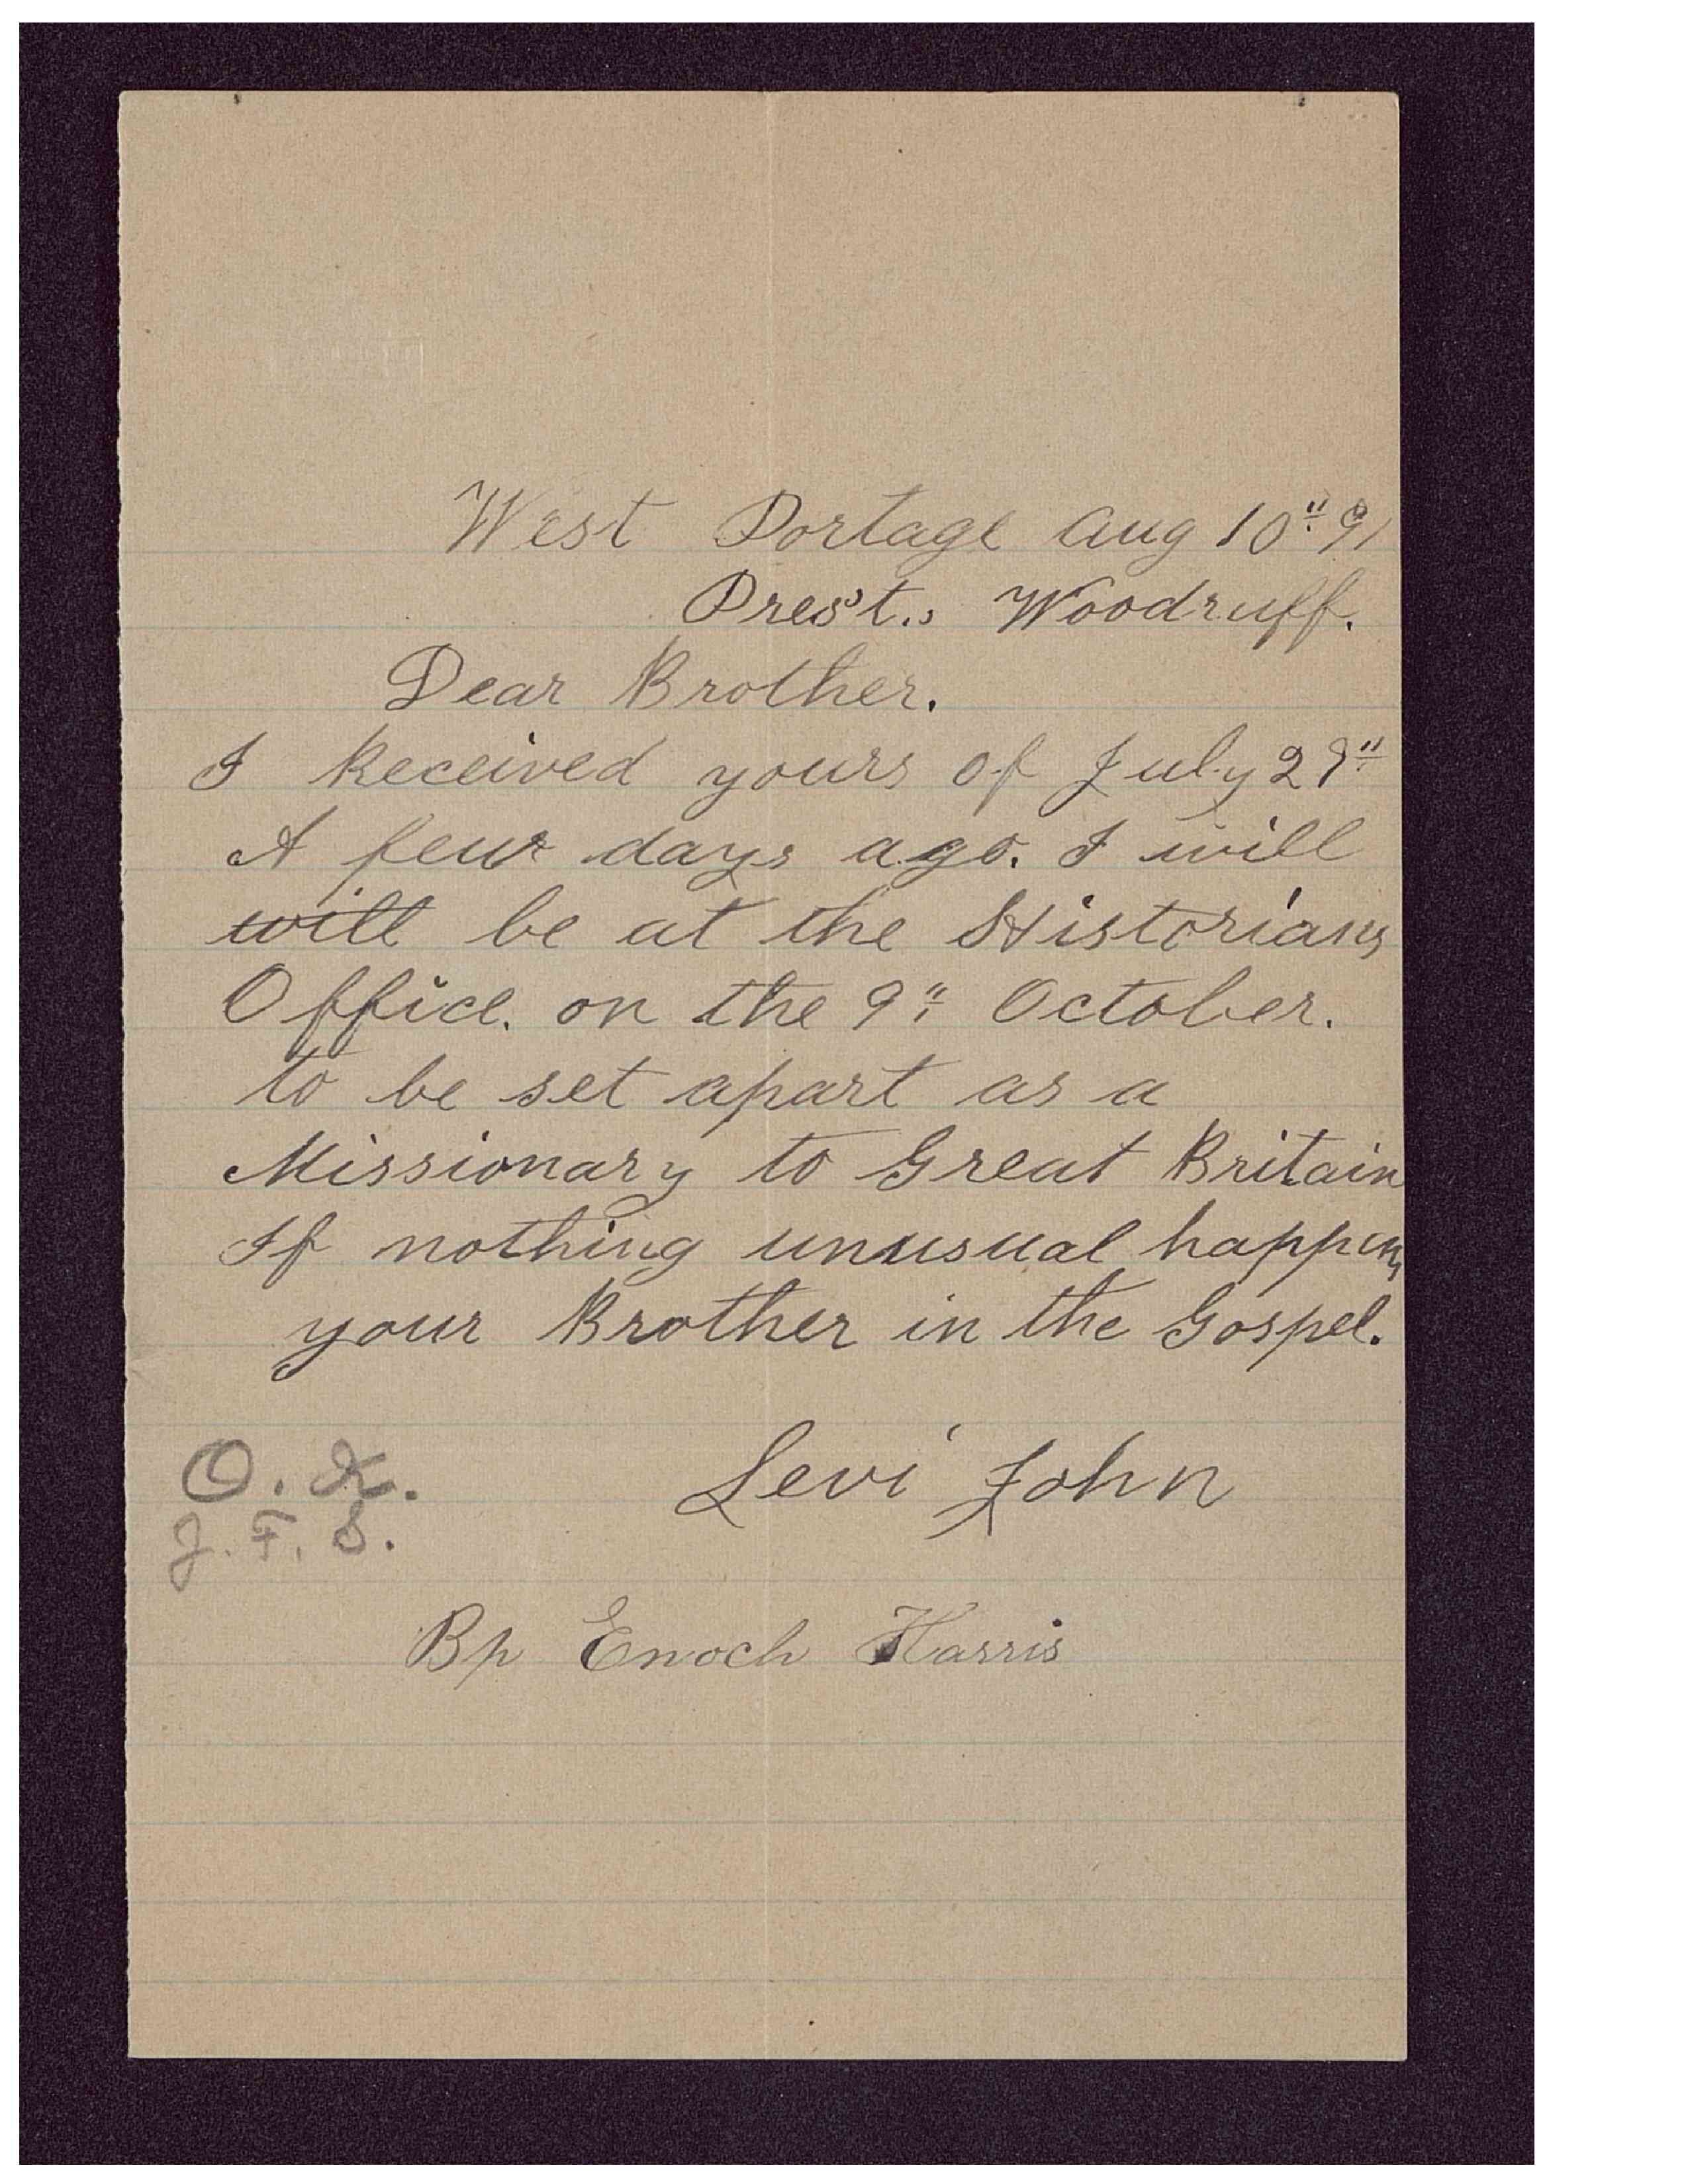 West Portage Aug 10" 91
Prest., Woodruff.
Dear Brother.
I Received yours of July 29"
A few days ago. I will
will be at the Historians
Office. on the 9" October.
to be set apart as a
Missionary to Great Britain
If nothing unusual happens
your Brother in the Gospel.
Levi John
O. K.
J. F. S.
Bp Enoch Harris